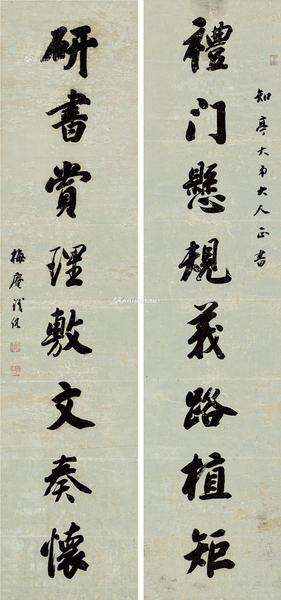 禮门懸規義路植矩
知亭大弟大人正書
研書賞理敷文奏懷
梅庵鐵保